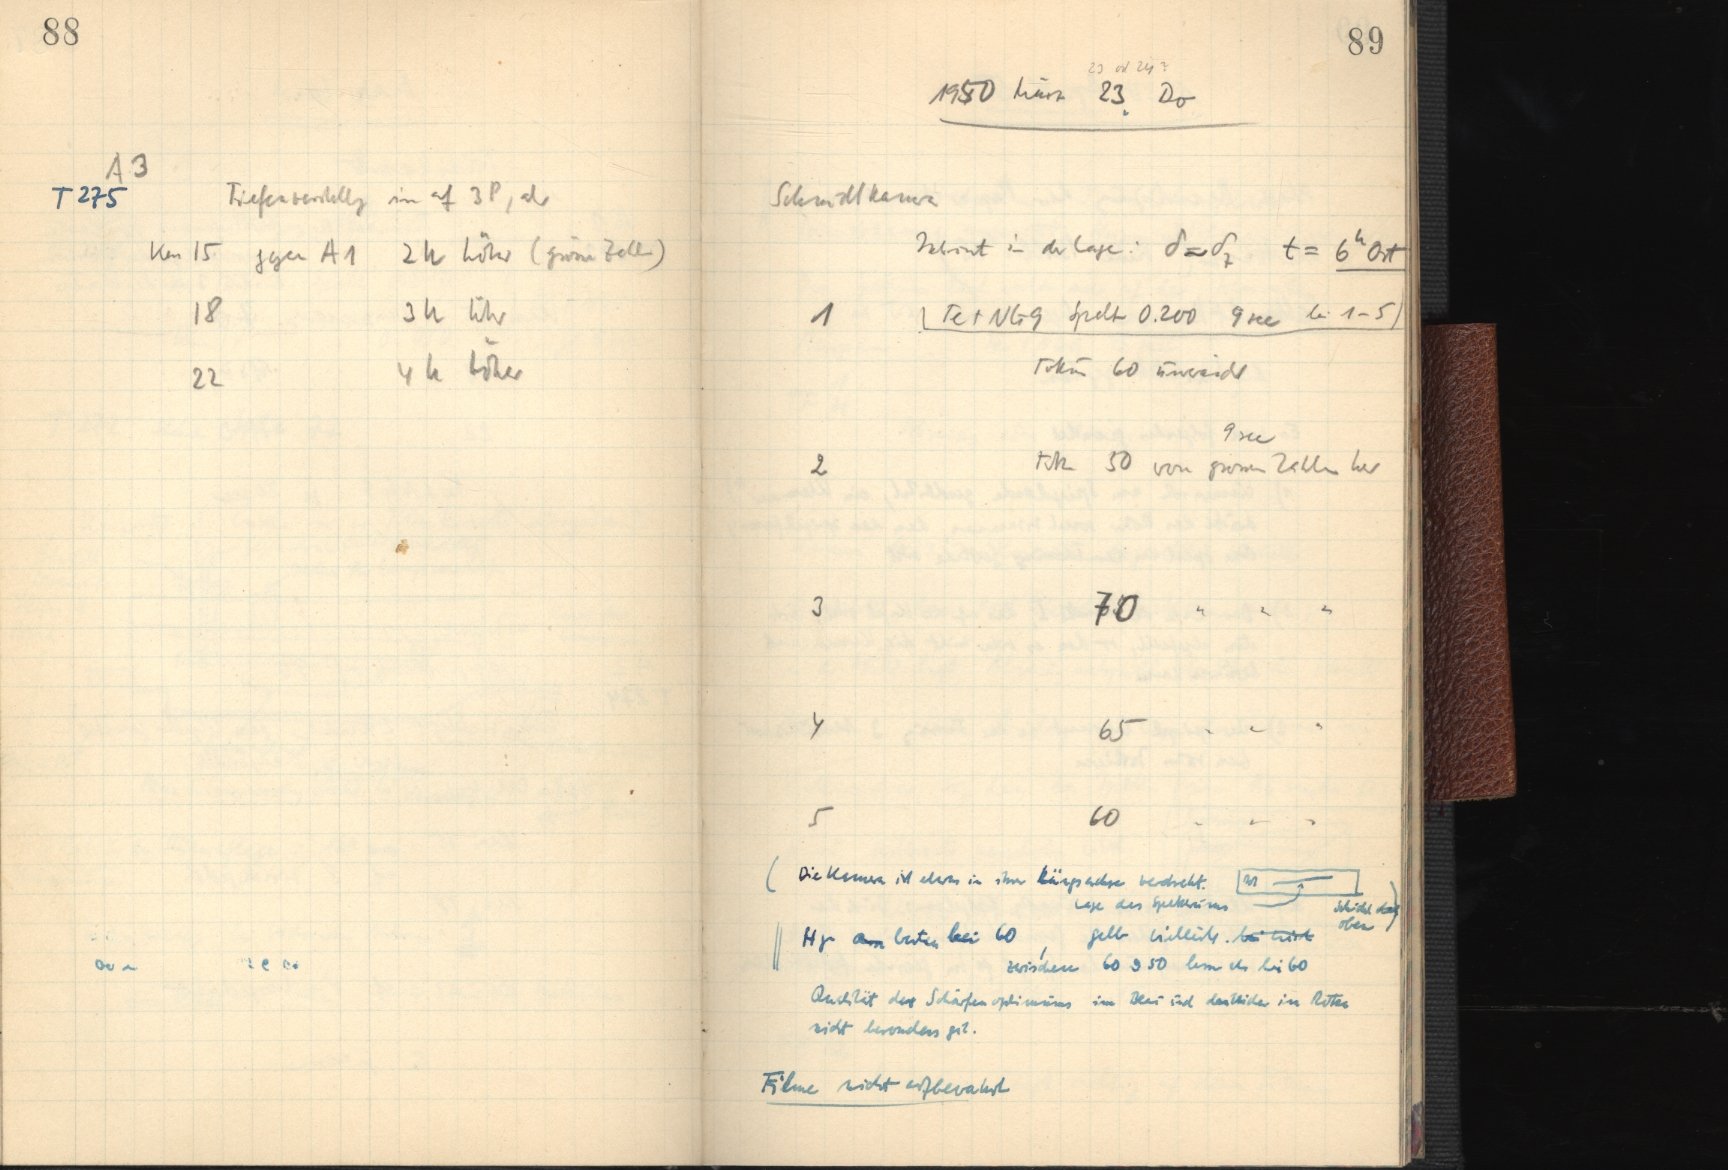 88
A3
T 275
Tiefenverstellg im auf 3P, als
Ken 15 gegen A1 2h höher (grüne Zelle)
18 3h höher
22 4h höher
89
23 od 24?
1950 März 23. Do
Schmidtkamera
in der Lage: δ = δz t = 6h Ost
1 (Te + NG9 Spalt 0.200 9 sec bei 1–5)
Tokus 60
9 sec
2 Tok 50 von grossen Zahlen her
3 70 " " "
4 65 " " "
5 60 " " "
(Die Kamera ist etwas in ihrer Längsachse verdreht.
Lage des Spektrums
Schicht
oben)
Hg am besten bei 60, gelb vielleicht
zwischen 60 & 50 besser als bei 60
Qualität des Schärfenoptimums im Blau und darüber im Roten
nicht besonders gut.
Filme nicht aufbewahrt